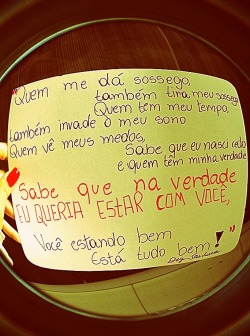 "Quem me dá sossego,
também tira meu sossego
Quem tem meu tempo,
também invade o meu sono
Quem vê meus medos,
Sabe que eu nasci cedo
e quem têm minha verdade
Sabe que na verdade
EU QUERIA ESTAR COM VOCÊ,
Você estando bem
Está tudo bem!"